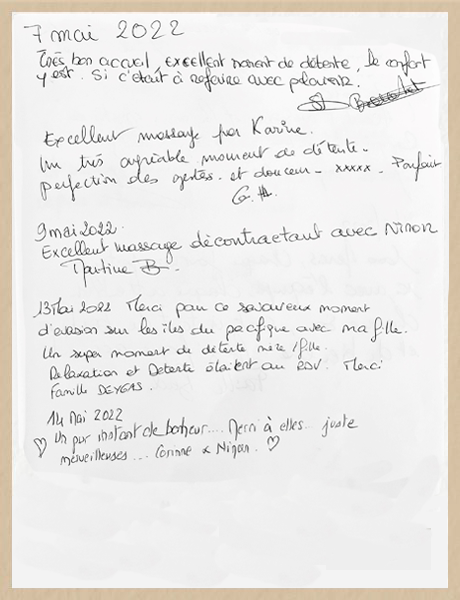 7 mai 2022
Très bon accueil, excellent moment de détente, le confort
y est. Si c'était à refaire avec plaisir.
Excellent massage par Karine.
Un très agréable moment de détente.
perfection des gestes. et douceur - xxxxx - Parfait
G.H.
9 mai 2022.
Excellent massage décontractant avec Ninon
Martine B.
13 Mai 2022 Merci pour ce savoureux moment
d'évasion sur les îles du pacifique avec ma fille.
Un super moment de détente mère/fille.
Relaxation et Détente étaient au RDV. Merci
Famille DEYGAS.
14 Mai 2022
♡ Un pur instant de bonheur.... Merci à elles... juste
merveilleuses... Corinne & Ninon. ♡